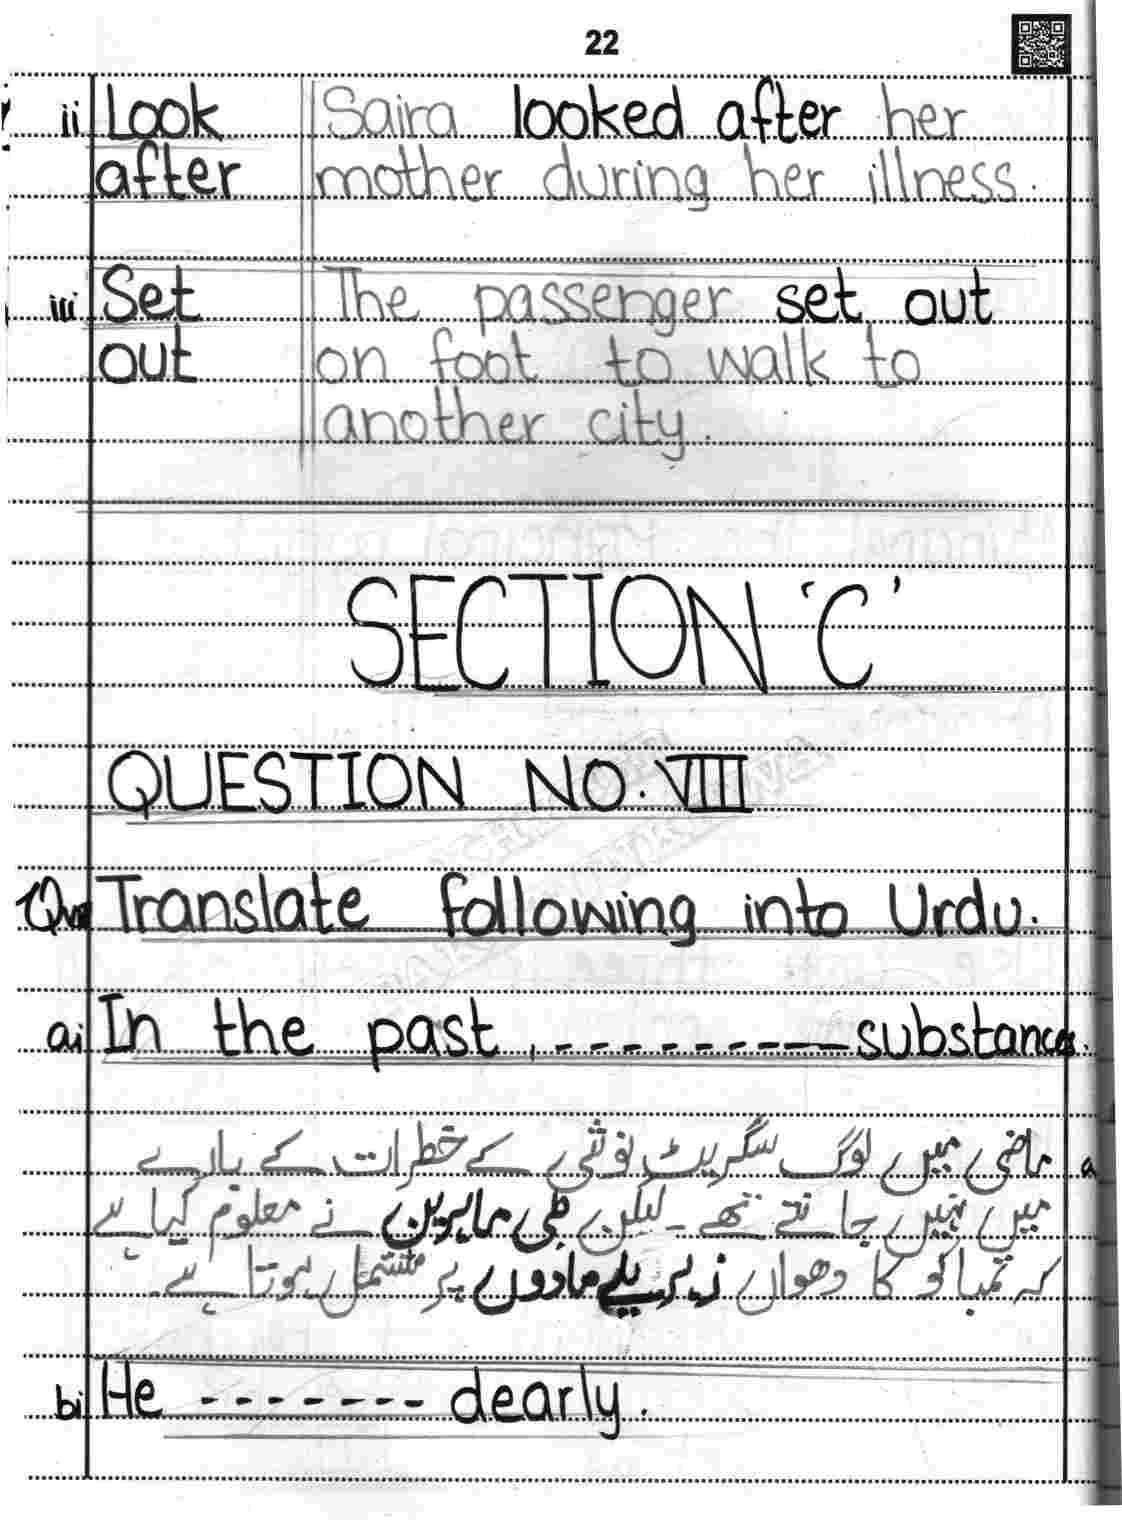 22
ii Look Saira looked after her
after mother during her illness.
iii Set The passenger set out
out on foot to walk to
another city.
SECTION 'C'
QUESTION NO. VIII
Translate following into Urdu.
ai In the past, --------- substances.
ماضی میں لوگ سگریٹ نوشی کے خطرات کے بارے
میں نہیں جانتے تھے۔ لیکن طبی ماہرین نے معلوم کیا ہے
کہ تمباکو کا دھواں زہریلے مادوں پر مشتمل ہوتا ہے۔
bi He ------- dearly.